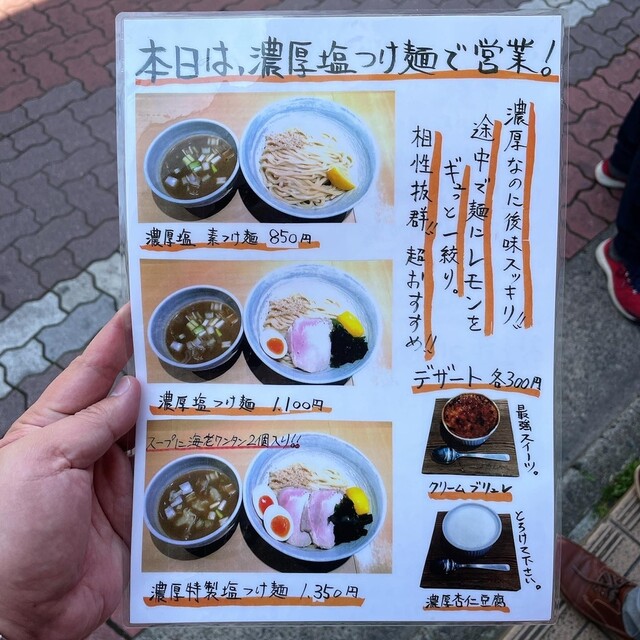 本日は、濃厚塩つけ麺で営業!
濃厚なのに後味スッキリ!!
途中で麺にレモンを
ギュっと一絞り。
相性抜群!! 超おすすめ!!
濃厚塩 素つけ麺 850円
濃厚塩つけ麺 1.100円
スープに海老ワンタン2個入り!!
濃厚特製塩つけ麺 1.350円
デザート 各300円
最強スイーツ。
クリームブリュレ
とろけて下さい。
濃厚杏仁豆腐